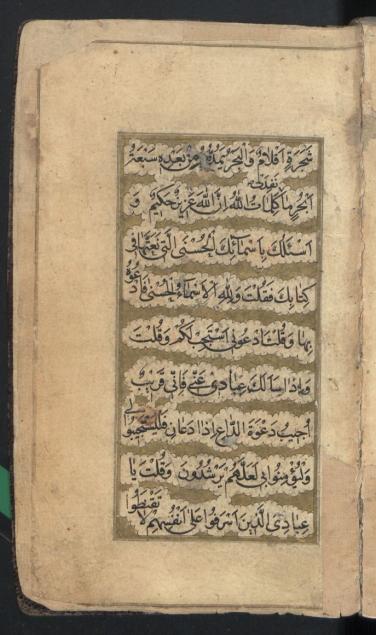 شَجَرَةٍ اَقْلَامٌ وَالْبَحْرُ يَمُدُّهُ مِنْ بَعْدِهِ سَبْعَةُ
اَبْحُرٍ مَا نَفِدَتْ كَلِمَاتُ اللّٰهِ اِنَّ اللّٰهَ عَزِيزٌ حَكِيمٌ وَ
اَسْئَلُكَ بِاَسْمَائِكَ الْحُسْنَى الَّتِي نَعَتَّهَا فِي
كِتَابِكَ فَقُلْتَ وَلِلّٰهِ الْاَسْمَاءُ الْحُسْنَى فَادْعُوهُ
بِهَا وَقُلْتَ ادْعُونِي اَسْتَجِبْ لَكُمْ وَقُلْتَ
وَاِذَا سَاَلَكَ عِبَادِي عَنِّي فَاِنِّي قَرِيبٌ
اُجِيبُ دَعْوَةَ الدَّاعِ اِذَا دَعَانِ فَلْيَسْتَجِيبُوا لِي
وَلْيُؤْمِنُوا بِي لَعَلَّهُمْ يَرْشُدُونَ وَقُلْتَ يَا
عِبَادِيَ الَّذِينَ اَسْرَفُوا عَلَى اَنْفُسِهِمْ لَا تَقْنَطُوا